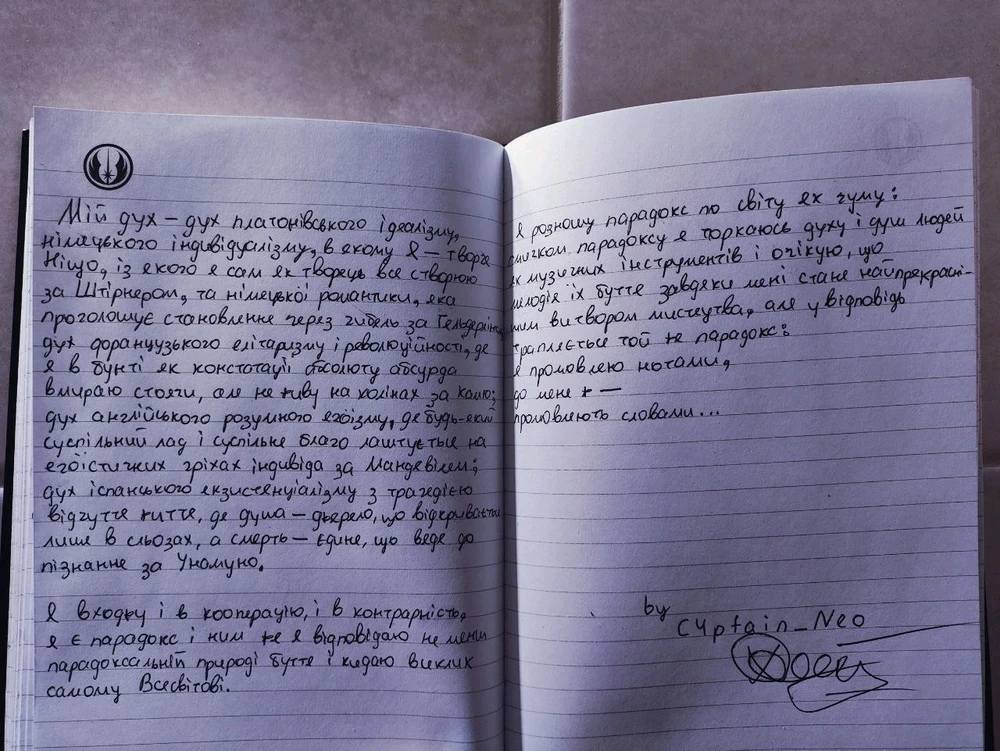 Мій дух – дух платонівського ідеалізму,
німецького індивідуалізму, в якому Я – творче
Ніщо, із якого я сам як творець все створюю
за Штірнером, та німецької романтики, яка
проголошує становлення через гибель за Гельдерліном
дух французького елітаризму і революційності, де
я в бунті як констатації абсолюту абсурда
вмираю стоячи, але не живу на колінах за Камю;
дух англійського розумного егоїзму, де будь-який
суспільний лад і суспільне благо лаштується на
егоїстичких гріхах індивіда за Мандевілем;
дух іспанського екзистенціалізму з трагедією
відчуття життя, де душа – джерело, що відкривається
лише в сльозах, а смерть – єдине, що веде до
пізнання за Унамуно.
Я входжу і в кооперацію, і в контрарність,
я є парадокс і ним же я відповідаю не менш
парадоксальній природі буття і кидаю виклик
самому Всесвітові.
Я розношу парадокс по світу як чуму:
смичком парадоксу я торкаюсь духу і душ людей
як музичних інструментів і очікую, що
мелодія їх буття завдяки мені стане найпрекрасні-
шим витвором мистецтва, але у відповідь
трапляється той же парадокс:
я промовляю нотами,
до мене ж —
промовляють словами...
by
C4ptain_Neo